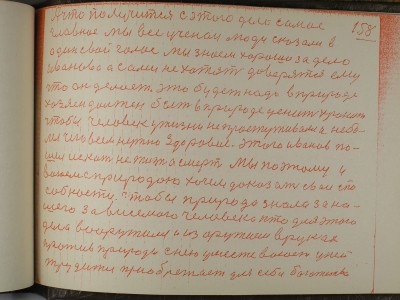 А что получится с этого дело самое 158
главное мы все ученои люди сказали в
один свой голос мы знаем хорошо за дело
иванова а сами не хотят доверятся ему
что он делает это будет надо в природе
хозяин должен быть в природе
чтобы человек у жизни не простуживался и не бо
лел человеку нужно здоровие. этого иванов по
шел искать не чина смерть мы поэтому и
воюем с природою хочем доказать свои спо
собности. чтобы природа знала за на
шего зависимого человека что для этого
дела вооружили и из оружием в руках
против природы с нею уместе воюет у ней
трудится приобретает для себя богатства